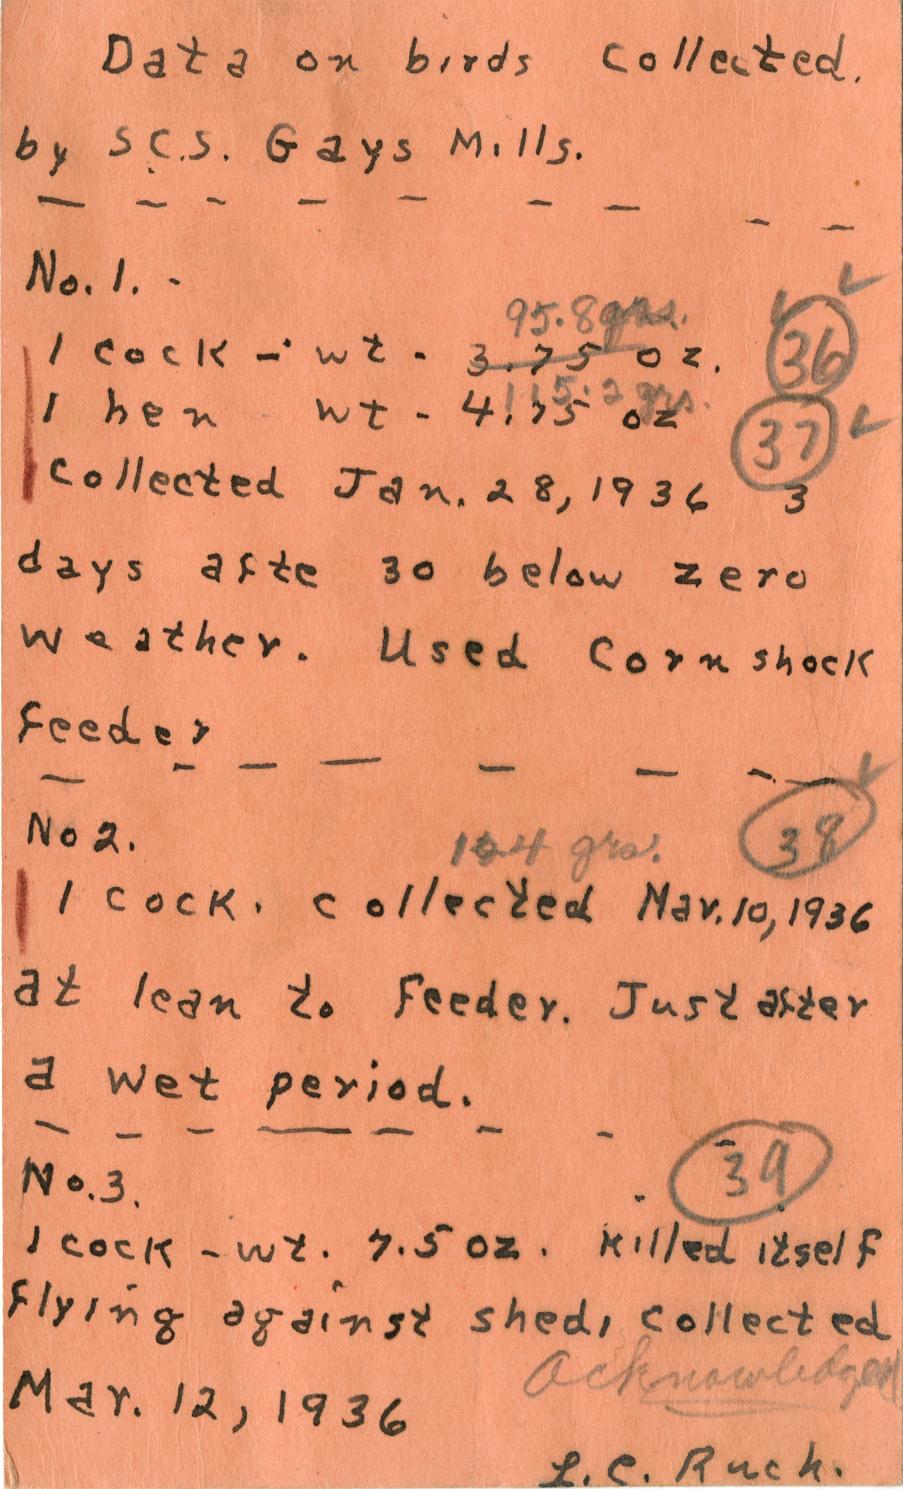 Data on birds collected.
by S.C.S. Gays Mills.
No. 1. -
95.8 grs.
1 cock - wt - 3.75 oz. 36
115.2 grs.
1 hen wt - 4.75 oz 37
collected Jan. 28, 1936 3
days afte 30 below zero
weather. Used Corn shock
feeder
No 2. 38
grs.
1 cock. collected Mar. 10, 1936
at lean to feeder. Just after
a wet period.
No. 3. 39
1 cock - wt. 7.5 oz. killed itself
flying against shed, collected
Acknowledged
Mar. 12, 1936
L. C. Ruch.